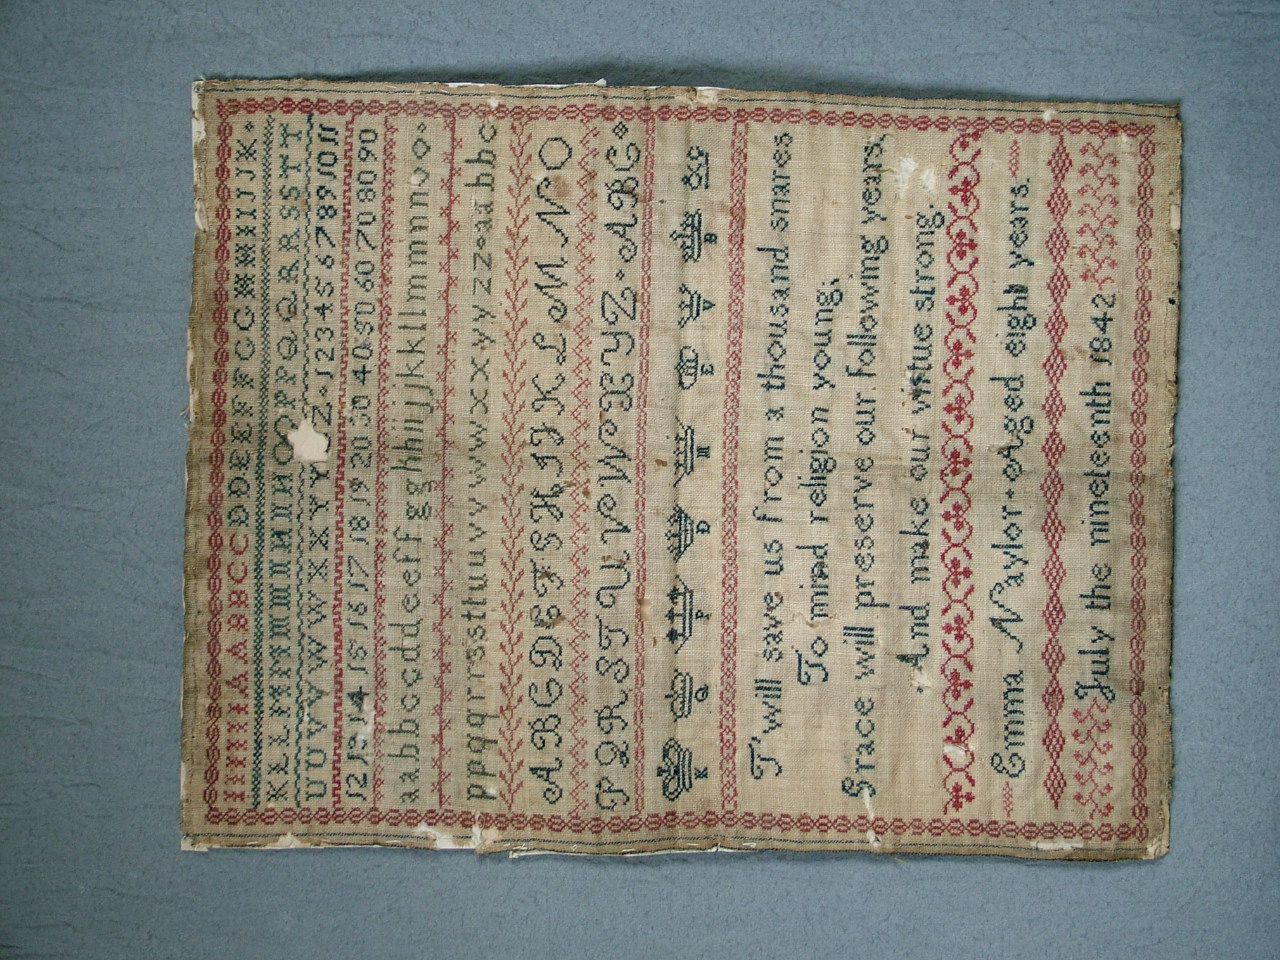 A A B B C C D D E E F F G G H H I I J J K
K L L M M M M N N N O O P P Q Q R R S S T T
U U V V W W X X Y Y Z 1 2 3 4 5 6 7 8 9 10 11
12 13 14 15 16 17 18 19 20 30 40 50 60 70 80 90
a a b b c c d d e e f f g g h h i i j j k k l l m m n n o o
p p q q r r s s t t u u v v w w x x y y z z a a b b c
A B C D E F G H I J K L M N O
P Q R S T U V W X Y Z A B C
K Q P D M E V B
T'will save us from a thousand snares
To mind religion young;
Grace will preserve our following years,
And make our virtue strong.
Emma Naylor Aged eight years.
July the nineteenth 1842